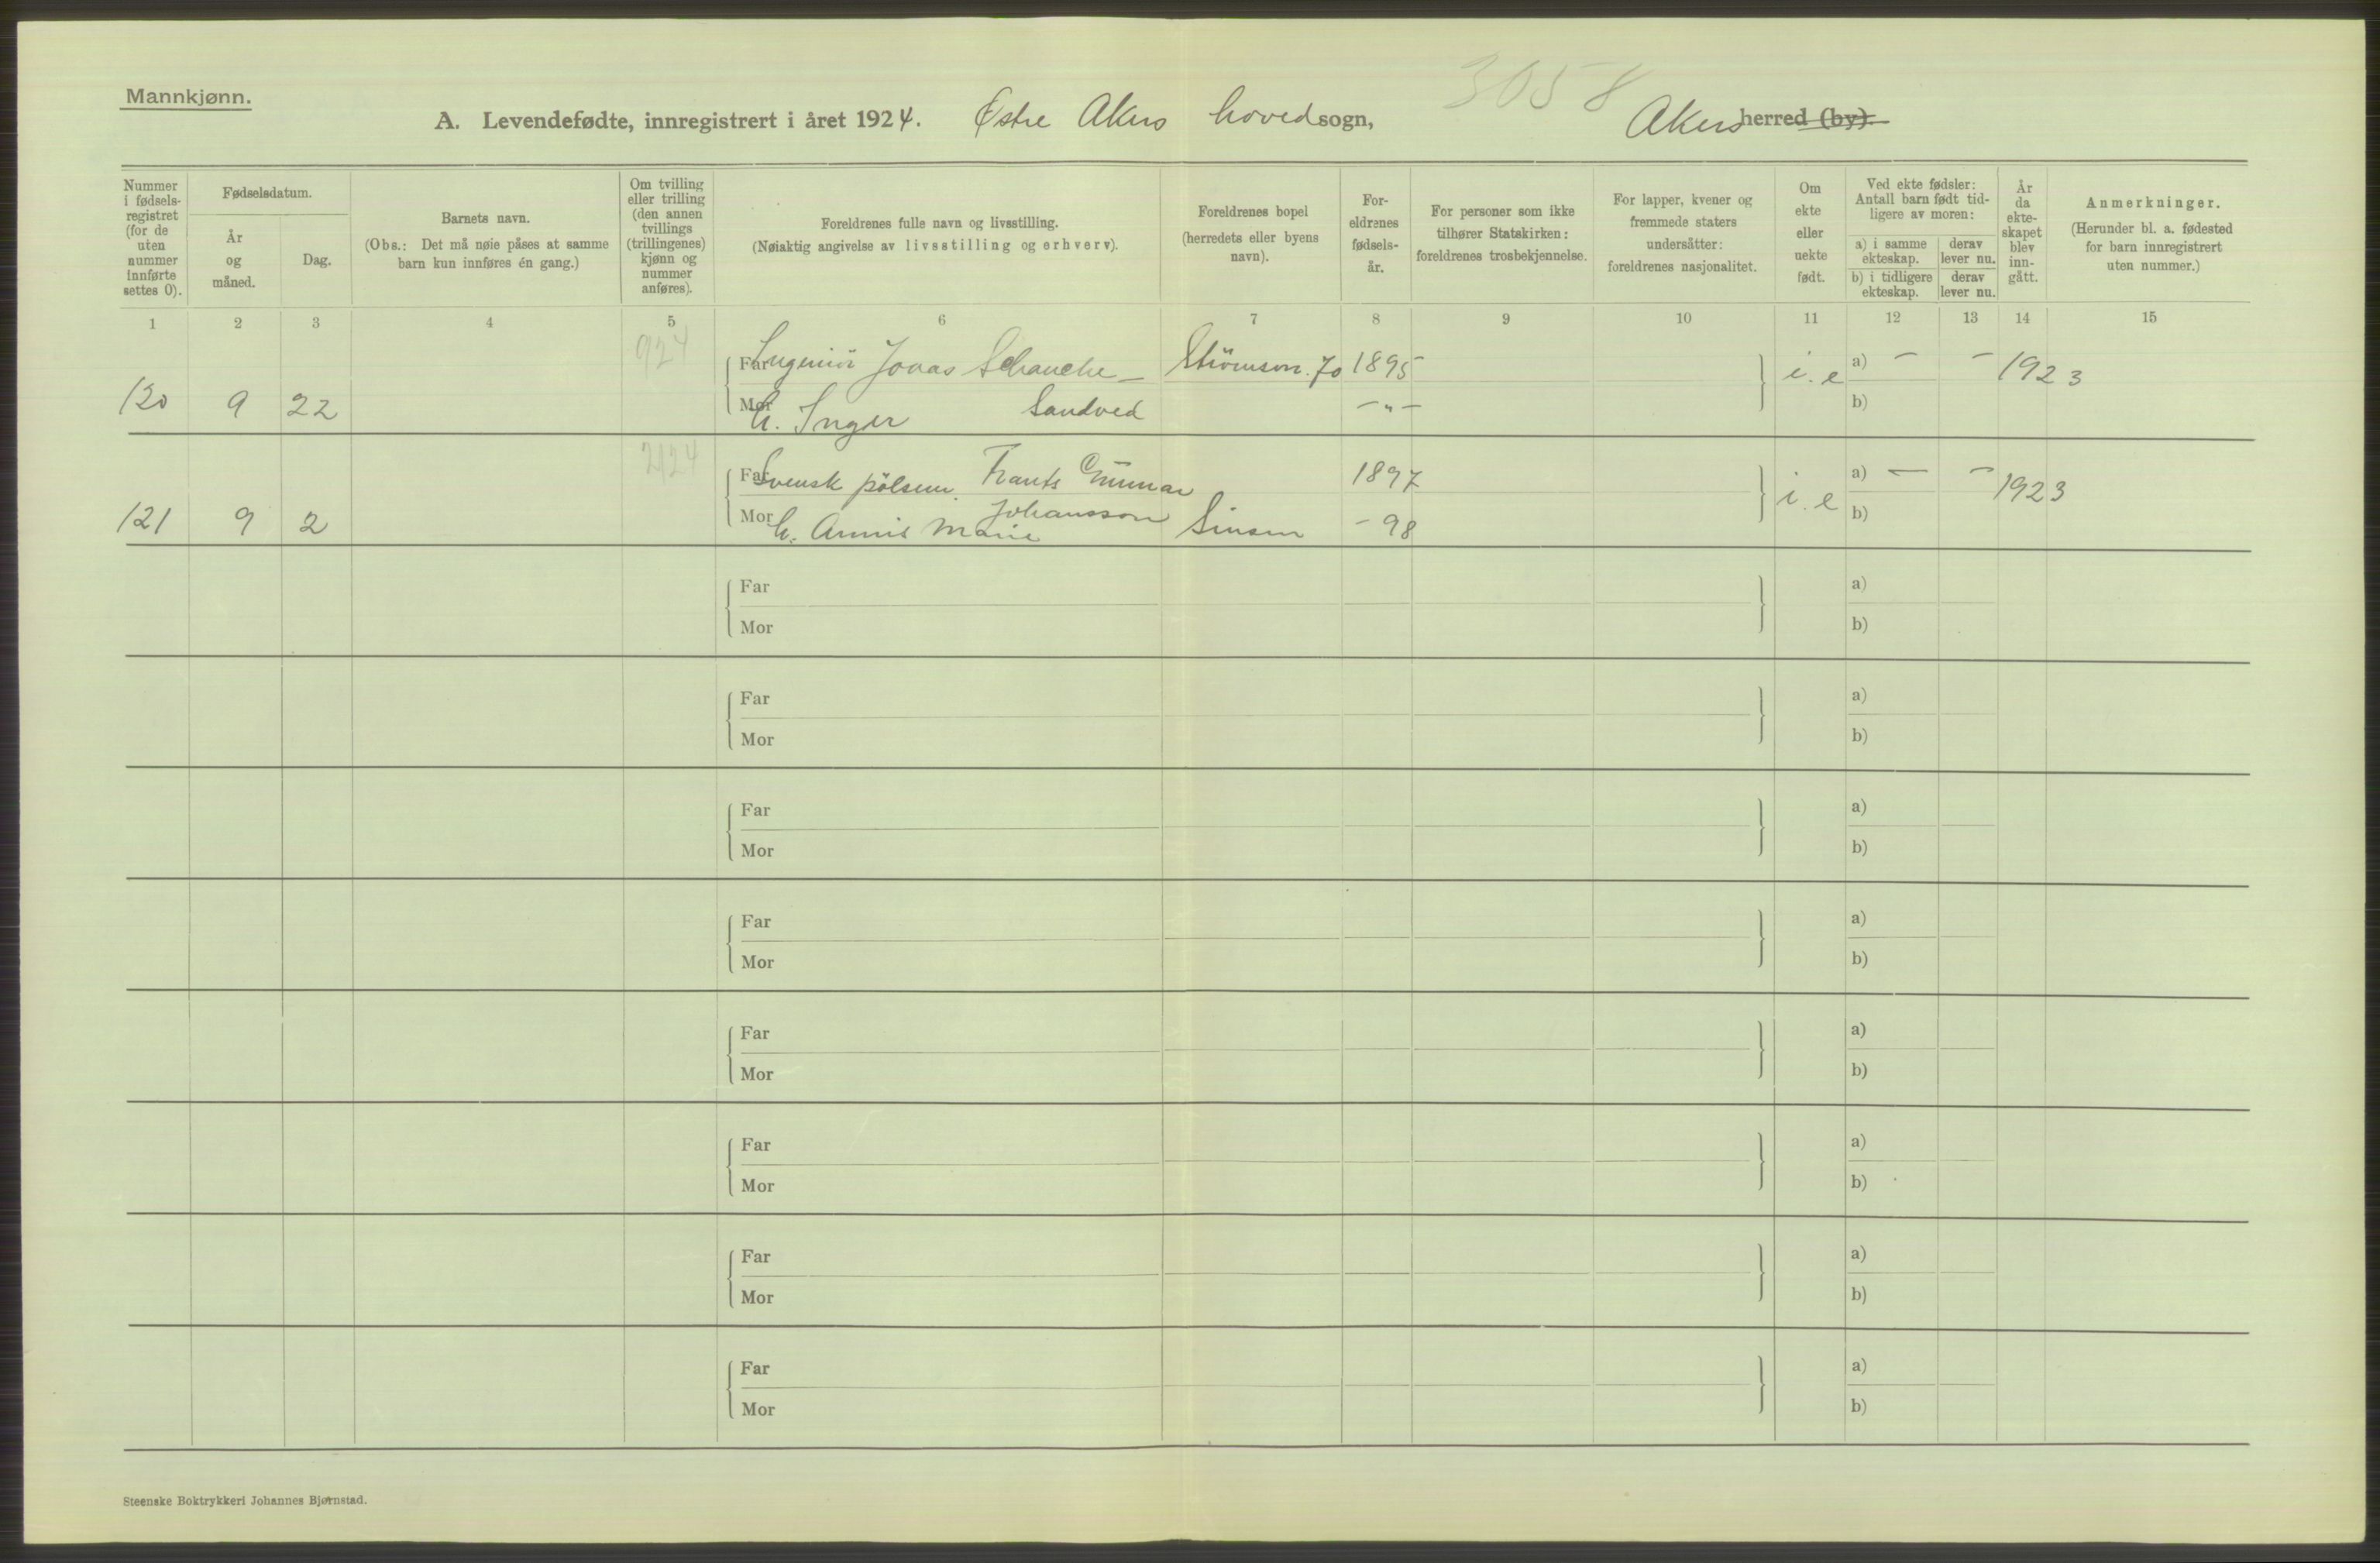 Mannkjønn.
3058
A. Levendefødte, innregistrert i året 1924. Østre Akers hovedsogn, Akers herred (by).
Nummer
i fødsels-
registret
(for de
uten
nummer
innførte
settes 0).
Fødselsdatum.
År
og
måned.
Dag.
Barnets navn.
(Obs.: Det må nøie påses at samme
barn kun innføres én gang.)
Om tvilling
eller trilling
(den annen
tvillings
(trillingenes)
kjønn og
nummer
anføres).
Foreldrenes fulle navn og livsstilling.
(Nøiaktig angivelse av livsstilling og erhverv).
Foreldrenes bopel
(herredets eller byens
navn).
For-
eldrenes
fødsels-
år.
For personer som ikke
tilhører Statskirken:
foreldrenes trosbekjennelse.
For lapper, kvener og
fremmede staters
undersåtter:
foreldrenes nasjonalitet.
Om
ekte
eller
uekte
født.
Ved ekte fødsler:
Antall barn født tid-
ligere av moren:
a) i samme
ekteskap.
derav
lever nu.
b) i tidligere
ekteskap.
derav
lever nu.
År
da
ekte-
skapet
blev
inn-
gått.
Anmerkninger.
(Herunder bl. a. fødested
for barn innregistrert
uten nummer.)
1 2 3 4 5 6 7 8 9 10 11 12 13 14 15
924
Far Ingeniör Jonas Schanche – Strömsvn. 70 1895 i. e a) – – 1923
120 9 22 Mor h. Inger Sandved –"– b)
2124
Far Svensk pölsem. Frants Gunnar 1897 i. e a) – – 1923
Johansson
121 9 2 Mor h. Annie Marie Sinsen –98 b)
Far a)
Mor b)
Far a)
Mor b)
Far a)
Mor b)
Far a)
Mor b)
Far a)
Mor b)
Far a)
Mor b)
Far a)
Mor b)
Far a)
Mor b)
Steenske Boktrykkeri Johannes Bjørnstad.